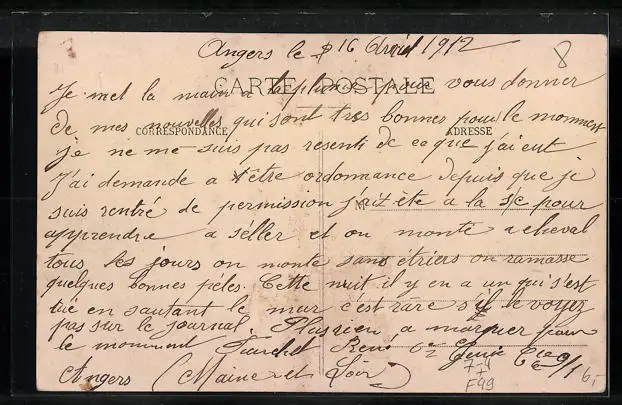 Angers le 16 Avril 1912
8
CARTE POSTALE
Je met la main a la plume pour vous donner
de mes nouvelles qui sont tres bonnes pour le momment
CORRESPONDANCE
ADRESSE
je ne me suis pas resenti de ce que j'ai eut
J'ai demande a être ordonmance depuis que je
suis rentré de permission ète a la pour
apprendre a séller et on monte a cheval
tous les jours on monte sans étriers on ramasse
quelques bonnes péles. Cette nuit il y en a un qui s'est
tué en sautant le mur c'est rare s'il le voyez
pas sur le journal. Plus rien a marquer pour
le momment René Genie Cie 9/1
Angers (Maine et Loir)
F49